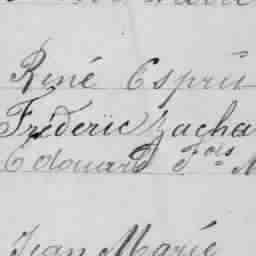 René Esprit
Fréderic Zacha
Edouard Fois M
Jean Marie